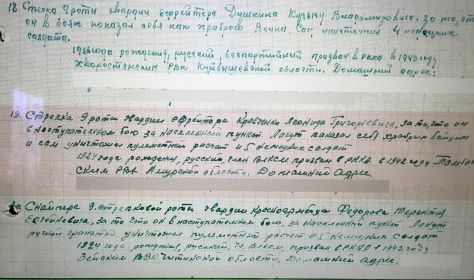 18. Стрелка 9 роты гвардии ефрейтора Душкина Кузьму Владимировича за то, что
он в бою показал себя как храброго воина. Сам уничтожил 4 немецких
солдата.
рождения, русский беспартийный призван в РККА в 1943 году
РВК Куйбышевской области. Домашний адрес:
19. Стрелка 9 роты гвардии ефрейтора Кравченко Леонида Григорьевича, за то, что он
в наступательном бою за населенный пункт показал себя храбрым бойцом
и сам уничтожил пулеметный расчет и 5 немецких солдат
1924 года рождения, русский, член ВЛКСМ призван в РККА в 1942 году
ским РВК Амурской области. Домашний адрес
Снайпера 9 стрелковой роты гвардии красноармейца Федорова Терентия
за то что он в наступательном бою, за населенный пункт
ручной гранатой уничтожил пулеметный расчет и 5 немецких солдат
1924 года рождения, русский, чл. ВЛКСМ призван в РККА в 1942 году
РВК Читинской области. Домашний адрес: